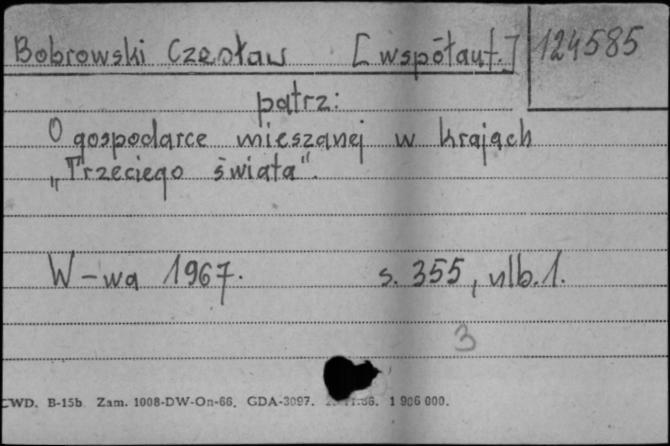 Bobrowski Czesław [współaut.] 124585
patrz:
O gospodarce mieszanej w krajach
„Trzeciego świata".
W-wa 1967. s. 355, nlb. 1.
3
CWD. B-15b. Zam. 1008-DW-On-66. GDA-3097. 1 986 000.